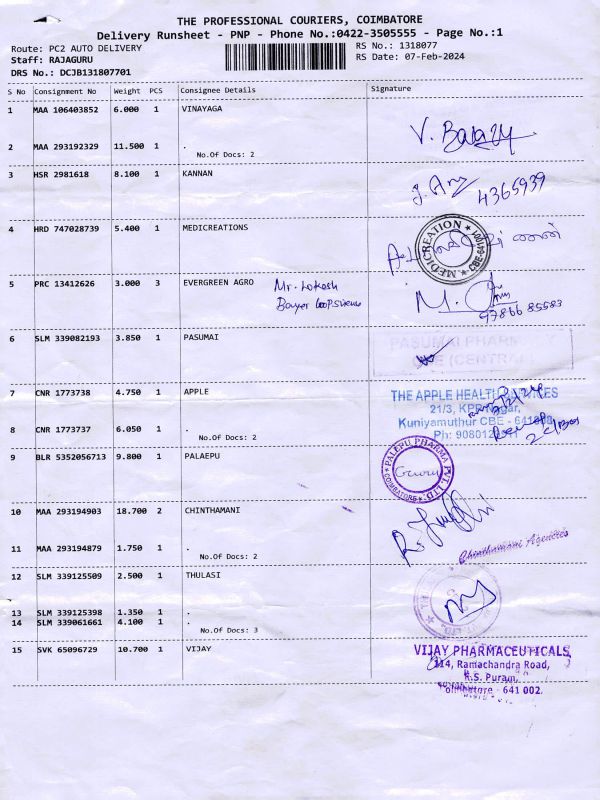 THE PROFESSIONAL COURIERS, COIMBATORE
Delivery Runsheet - PNP - Phone No.:0422-3505555 - Page No.:1
Route: PC2 AUTO DELIVERY
RS No.: 1318077
Staff: RAJAGURU
RS Date: 07-Feb-2024
DRS No.: DCJB131807701
S No Consignment No Weight PCS Consignee Details Signature
1 MAA 106403852 6.000 1 VINAYAGA
2 MAA 293192329 11.500 1 .
No.Of Docs: 2
3 HSR 2981618 8.100 1 KANNAN
4365939
4 HRD 747028739 5.400 1 MEDICREATIONS
MEDICREATION
5 PRC 13412626 3.000 3 EVERGREEN AGRO Mr. Lokesh
9786685583
6 SLM 339082193 3.850 1 PASUMAI
PASUMAI PHARMACY
CBE (CENTRAL)
7 CNR 1773738 4.750 1 APPLE
THE APPLE HEALTH SERVICES
21/3, KPR Nagar,
Kuniyamuthur CBE - 641008
Ph: 908012
8 CNR 1773737 6.050 1 .
No.Of Docs: 2
9 BLR 5352056713 9.800 1 PALAEPU
PALEPU PHARMA PVT. LTD.
COIMBATORE
10 MAA 293194903 18.700 2 CHINTHAMANI
11 MAA 293194879 1.750 1 .
No.Of Docs: 2
Chinthamani Agencies
12 SLM 339125509 2.500 1 THULASI
13 SLM 339125398 1.350 1 .
14 SLM 339061661 4.100 1 .
No.Of Docs: 3
15 SVK 65096729 10.700 1 VIJAY
VIJAY PHARMACEUTICALS,
114, Ramachandra Road,
R.S. Puram,
Coimbatore - 641 002.